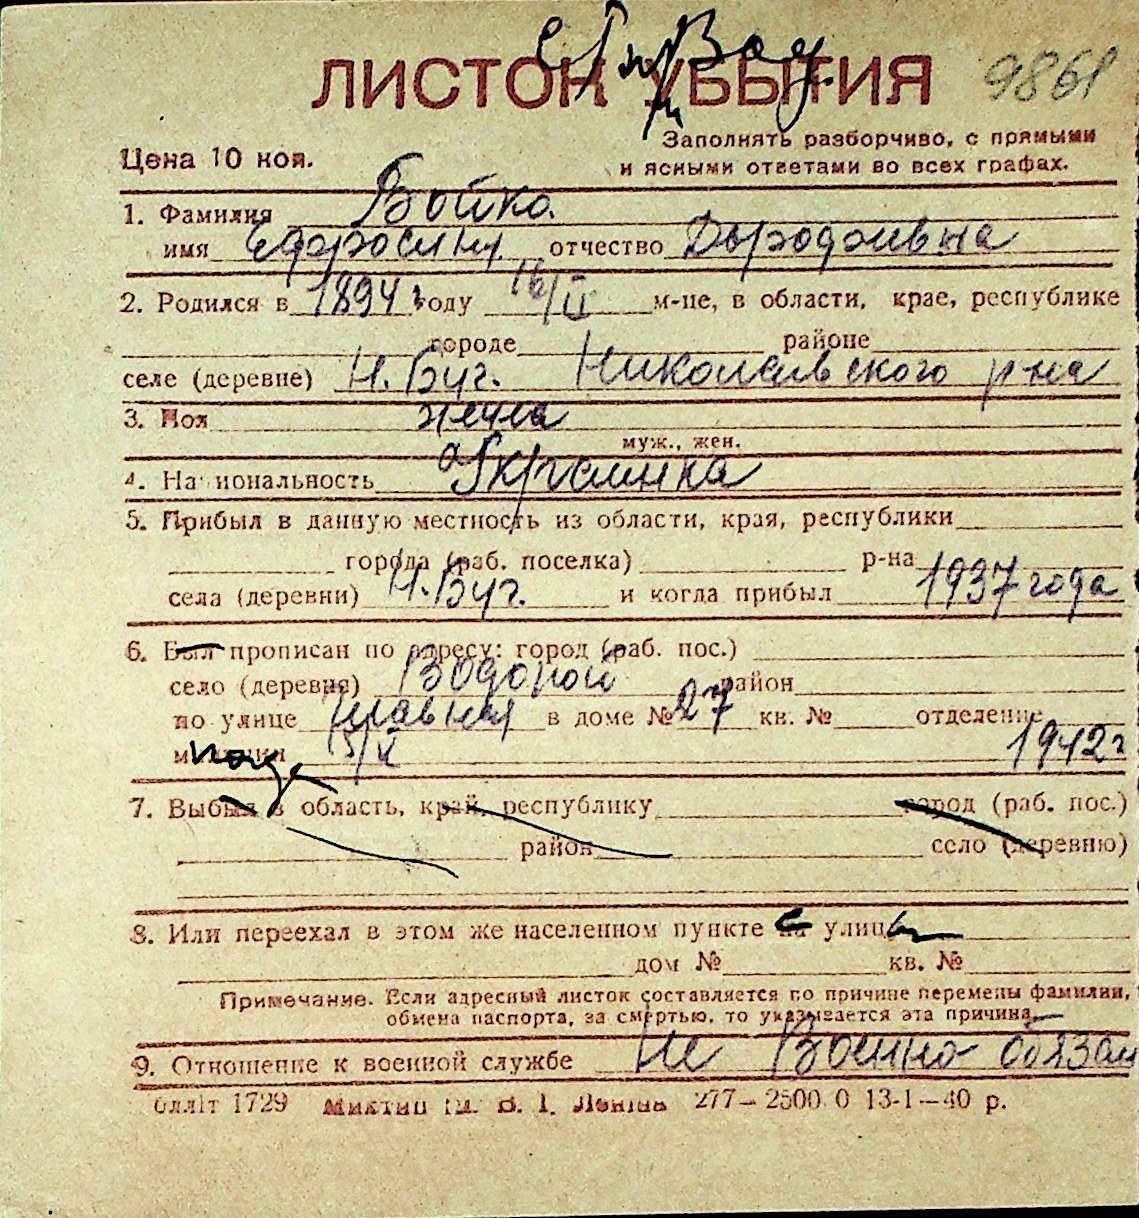 ЛИСТОК УБЫТИЯ 9861
Заполнять разборчиво, с прямыми
Цена 10 коп.
и ясными ответами во всех графах.
1. Фамилия Бойко
имя Ефросиния отчество
2. Родился в 1894 г году 16/II м-це, в области, крае, республике
городе районе
селе (деревне) Н. Буг. Николаевского р-на
3. Пол
муж., жен.
4. Национальность Украинка
5. Прибыл в данную местность из области, края, республики
города (раб. поселка) р-на
села (деревни) Н. Буг. и когда прибыл 1937 года
6. Был прописан по адресу: город (раб. пос.)
село (деревня) Водопой район
по улице в доме № 27 кв. № отделение
милиции 1942 г
7. Выбыл в область, край, республику город (раб. пос.)
район село (деревню)
8. Или переехал в этом же населенном пункте на улицу
дом № кв. №
Примечание. Если адресный листок составляется по причине перемены фамилии,
обмена паспорта, за смертью, то указывается эта причина.
9. Отношение к военной службе Не Военно обязан
1729 277—2500 0 13-1—40 р.